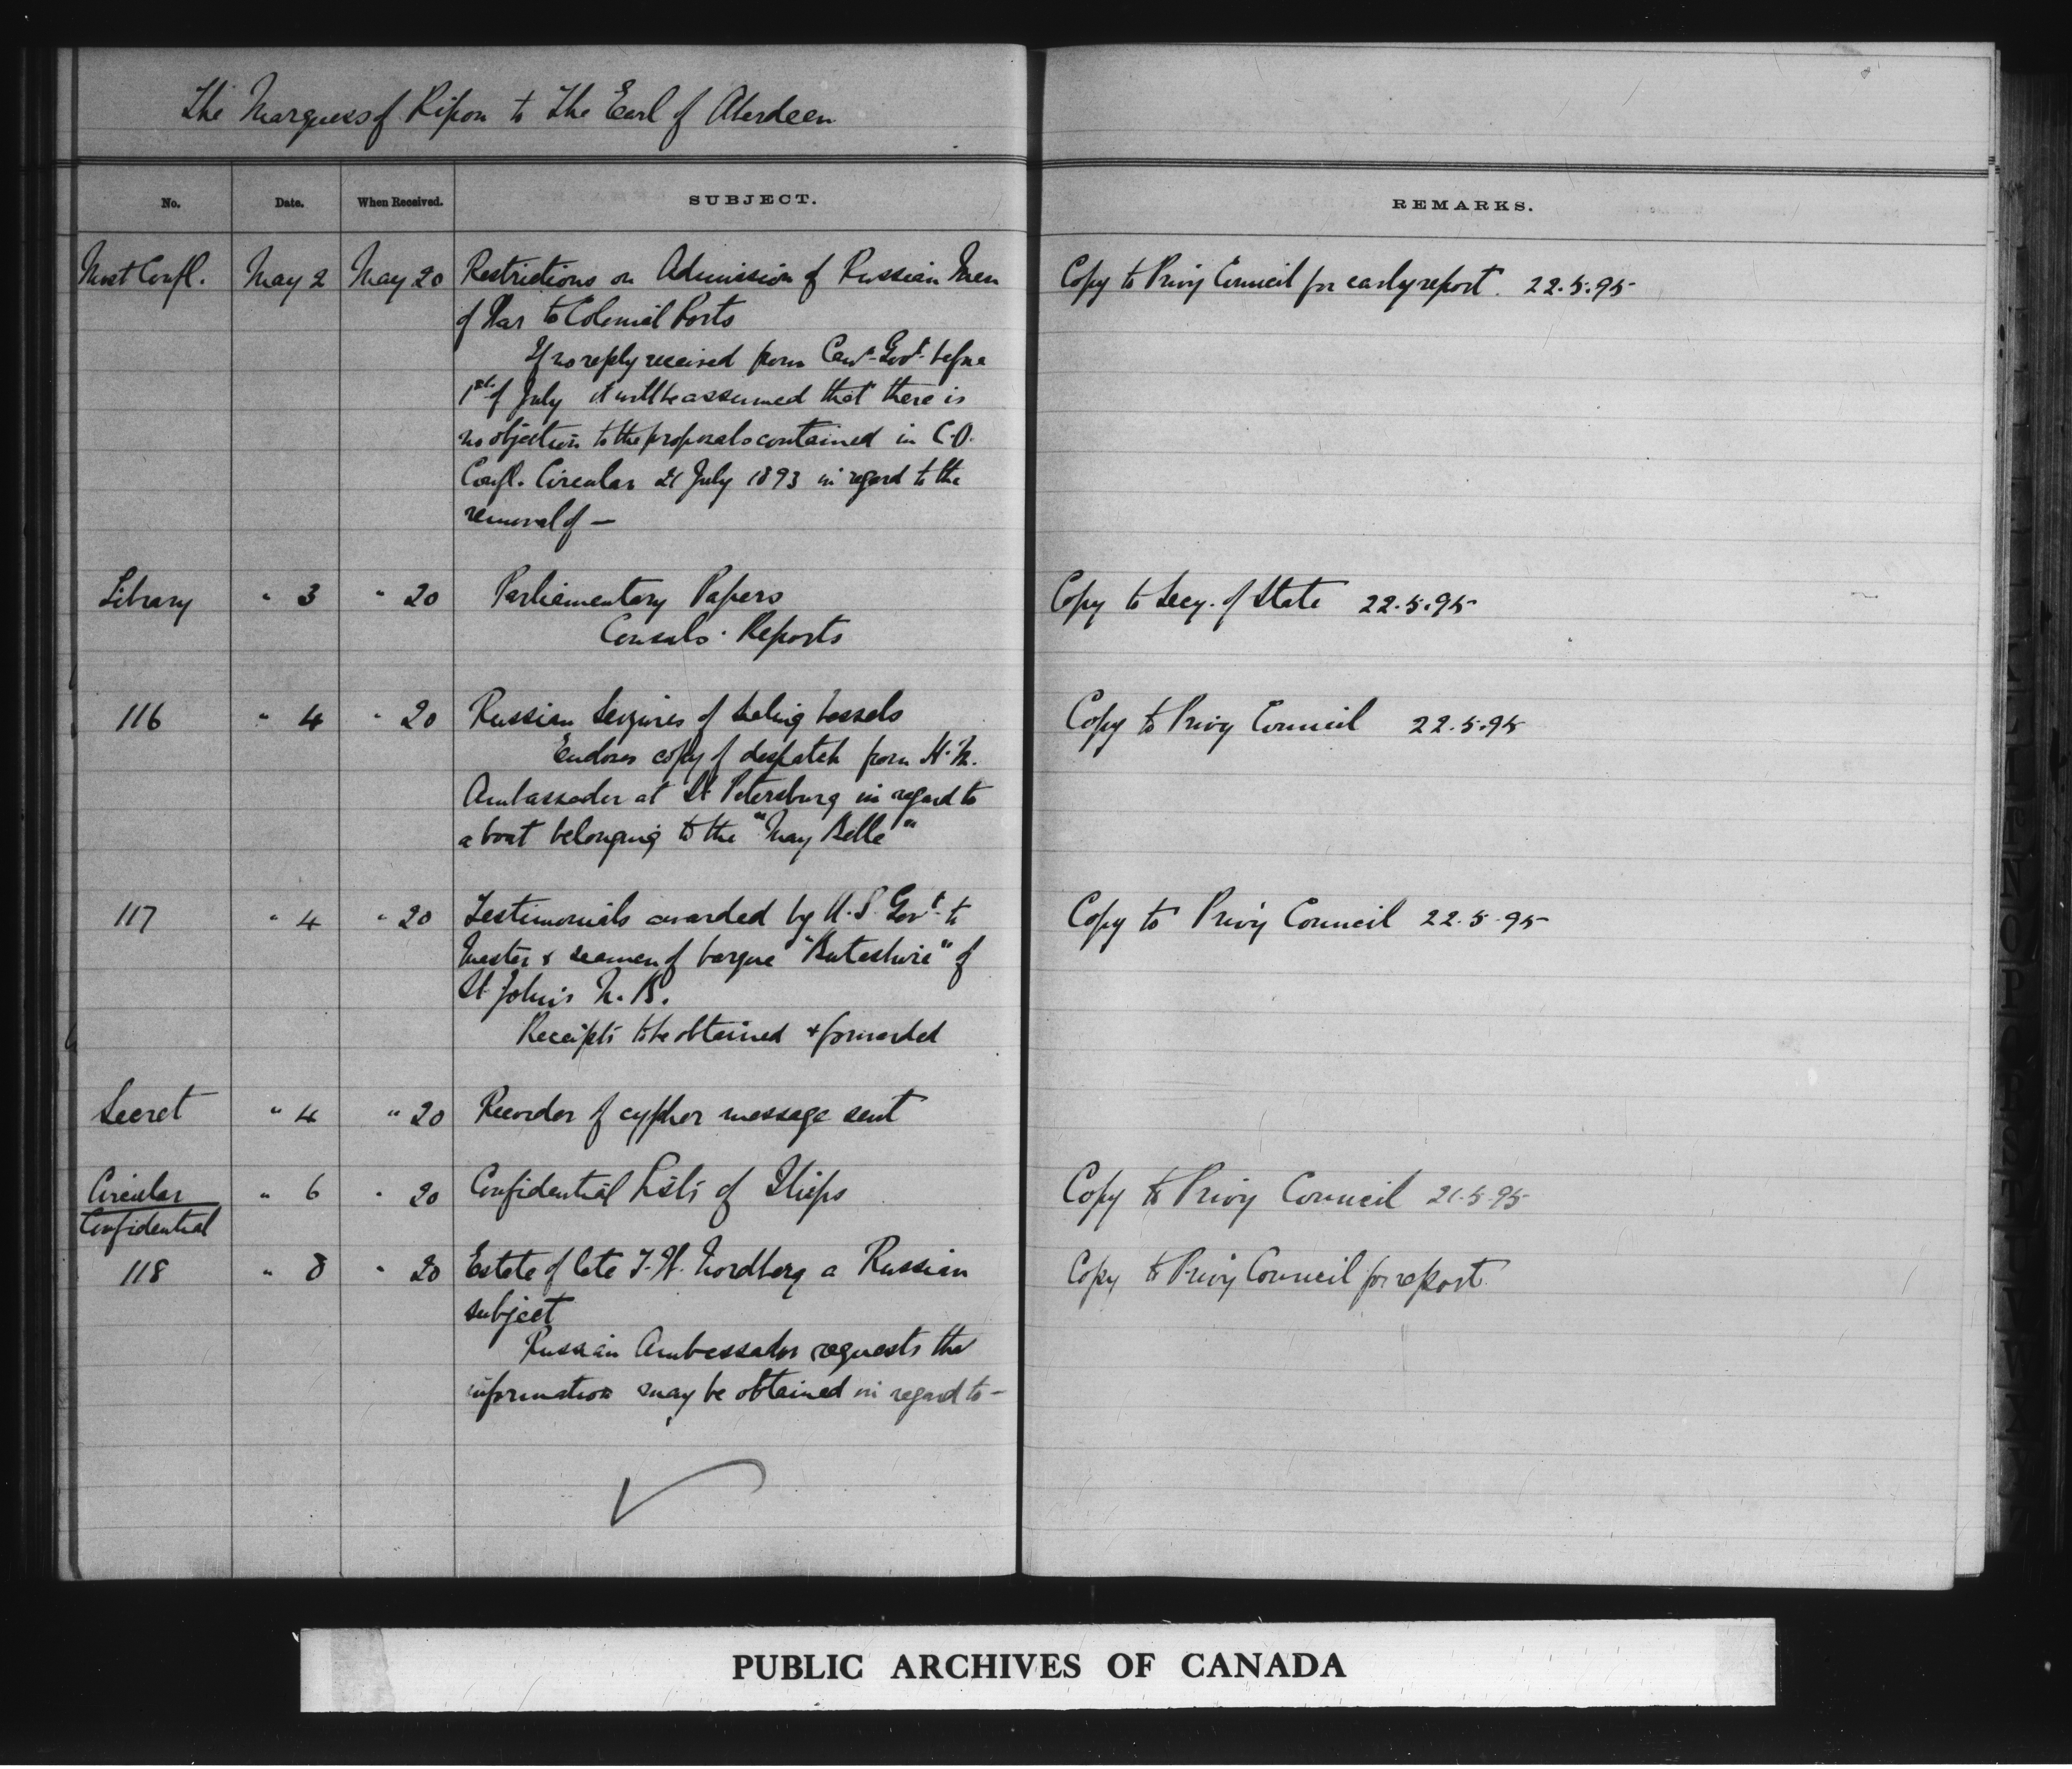 The Marquess of Ripon to The Earl of Aberdeen
No. Date. When Received. SUBJECT. REMARKS.
Most Confl. May 2 May 20 Restrictions on Admission of Russian Men Copy to Privy Council for early report. 22.5.95
of War to Colonial Ports
If no reply received from Can. Govt. before
1st of July it will be assumed that there is
no objection to the proposals contained in C.O.
Confl. Circular 21 July 1893 in regard to the
removal of —
Library " 3 " 20 Parliamentary Papers Copy to Secy. of State 22.5.95
Consuls' Reports
116 " 4 " 20 Russian Seizures of Sealing Vessels Copy to Privy Council 22.5.95
Encloses copy of despatch from H.M.
Ambassador at St Petersburg in regard to
a boat belonging to the "May Belle"
117 " 4 " 20 Testimonials awarded by U.S. Govt. to Copy to Privy Council 22.5.95
Master & seamen of barque "Buteshire" of
St John's N.B.
Receipts to be obtained & forwarded
Secret " 4 " 20 Recorder of cypher message sent
Circular " 6 " 20 Confidential Lists of Ships Copy to Privy Council 21.5.95
Confidential
118 " 8 " 20 Estate of late J.W. Nordberg a Russian Copy to Privy Council for report.
subject
Russian Ambassador requests the
information may be obtained in regard to —
PUBLIC ARCHIVES OF CANADA